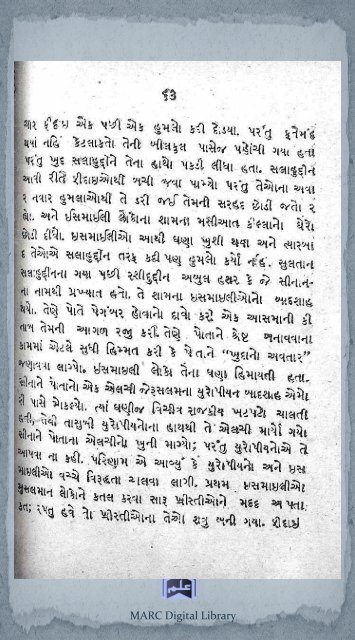 ૬૩
ચાર ફીદાઇ એક પછી એક હુમલો કરી દોડયા. પરંતુ ફતેમંદ
થયાં નહિ કેટલાકતો તેની બીલકુલ પાસેજ પહોંચી ગયા હતાં
પરંતુ ખુદ સલાહુદ્દીને તેના હાથો પકડી લીધા હતા. સલાહુદ્દીન
આવી રીતે ફીદાઇઓથી બચી જવા પામ્યો પરંતુ તેઓના અવા
ર નવાર હુમલાઓથી તે ડરી જઈ તેમની સરહદ છોડી જતો ર
હ્યો. અને ઇસમાઇલી લોકોના શામના મસીઆત કીલ્લાનો ઘેરો
છોડી દીધો. ઇસમાઇલીઓ આથી ઘણા ખુશી થયા અને ત્યારબા
દ તેઓએ સલાહુદ્દીન તરફ કદી પણ હુમલો કર્યો નહિ. સુલતાન
સલાહુદ્દીનના ગયા પછી રશીદુદ્દીન અબુલ હશર કે જે સીનાન-
ના નામથી પ્રખ્યાત હતો. તે શામના ઇસમાઇલીઓનો બાદશાહ
થયો. તેણે પોતે પેગંબર હોવાનો દાવો કર્યો એક આસમાની કી
તાબ તેમની આગળ રજુ કરી. તેણે પોતાને શ્રેષ્ટ બનાવવાના
કામમાં એટલે સુધી હિમ્મત કરી કે પોતાને “ખુદાનો અવતાર”
જણાવવા લાગ્યો. ઇસમાઇલી લોકો તેના ઘણા હિમાયતી હતા.
સીનાને પોતાનો એક એલચી જેરૂસલમના યુરોપીયન બાદશાહ એમો
રી પાસે મોકલ્યો. ત્યાં ઘણીજ વિચીત્ર રાજકીય ખટપટો ચાલતી
હતી, તેથી તાસુબી યુરોપીયનોના હાથથી તે એલચી માર્યો ગયો
સીનાને પોતાના એલચીનો ખુની માગ્યો; પરંતુ યુરોપીયનોએ તે
આપવા ના કહી. પરિણામ એ આવ્યું કે યુરોપીયનો અને ઇસ
માઇલીઓ વચ્ચે વિરૂદ્ધતા ચાલવા લાગી. પ્રથમ ઇસમાઇલીઓ
મુસલમાન લોકોને કતલ કરવા સારૂ ખ્રીસ્તીઓને મદદ આપતા
હતા; પરંતુ હવે તો ખ્રીસ્તીઓના તેઓ શત્રુ બની ગયા. ફીદાઇ
MARC Digital Library